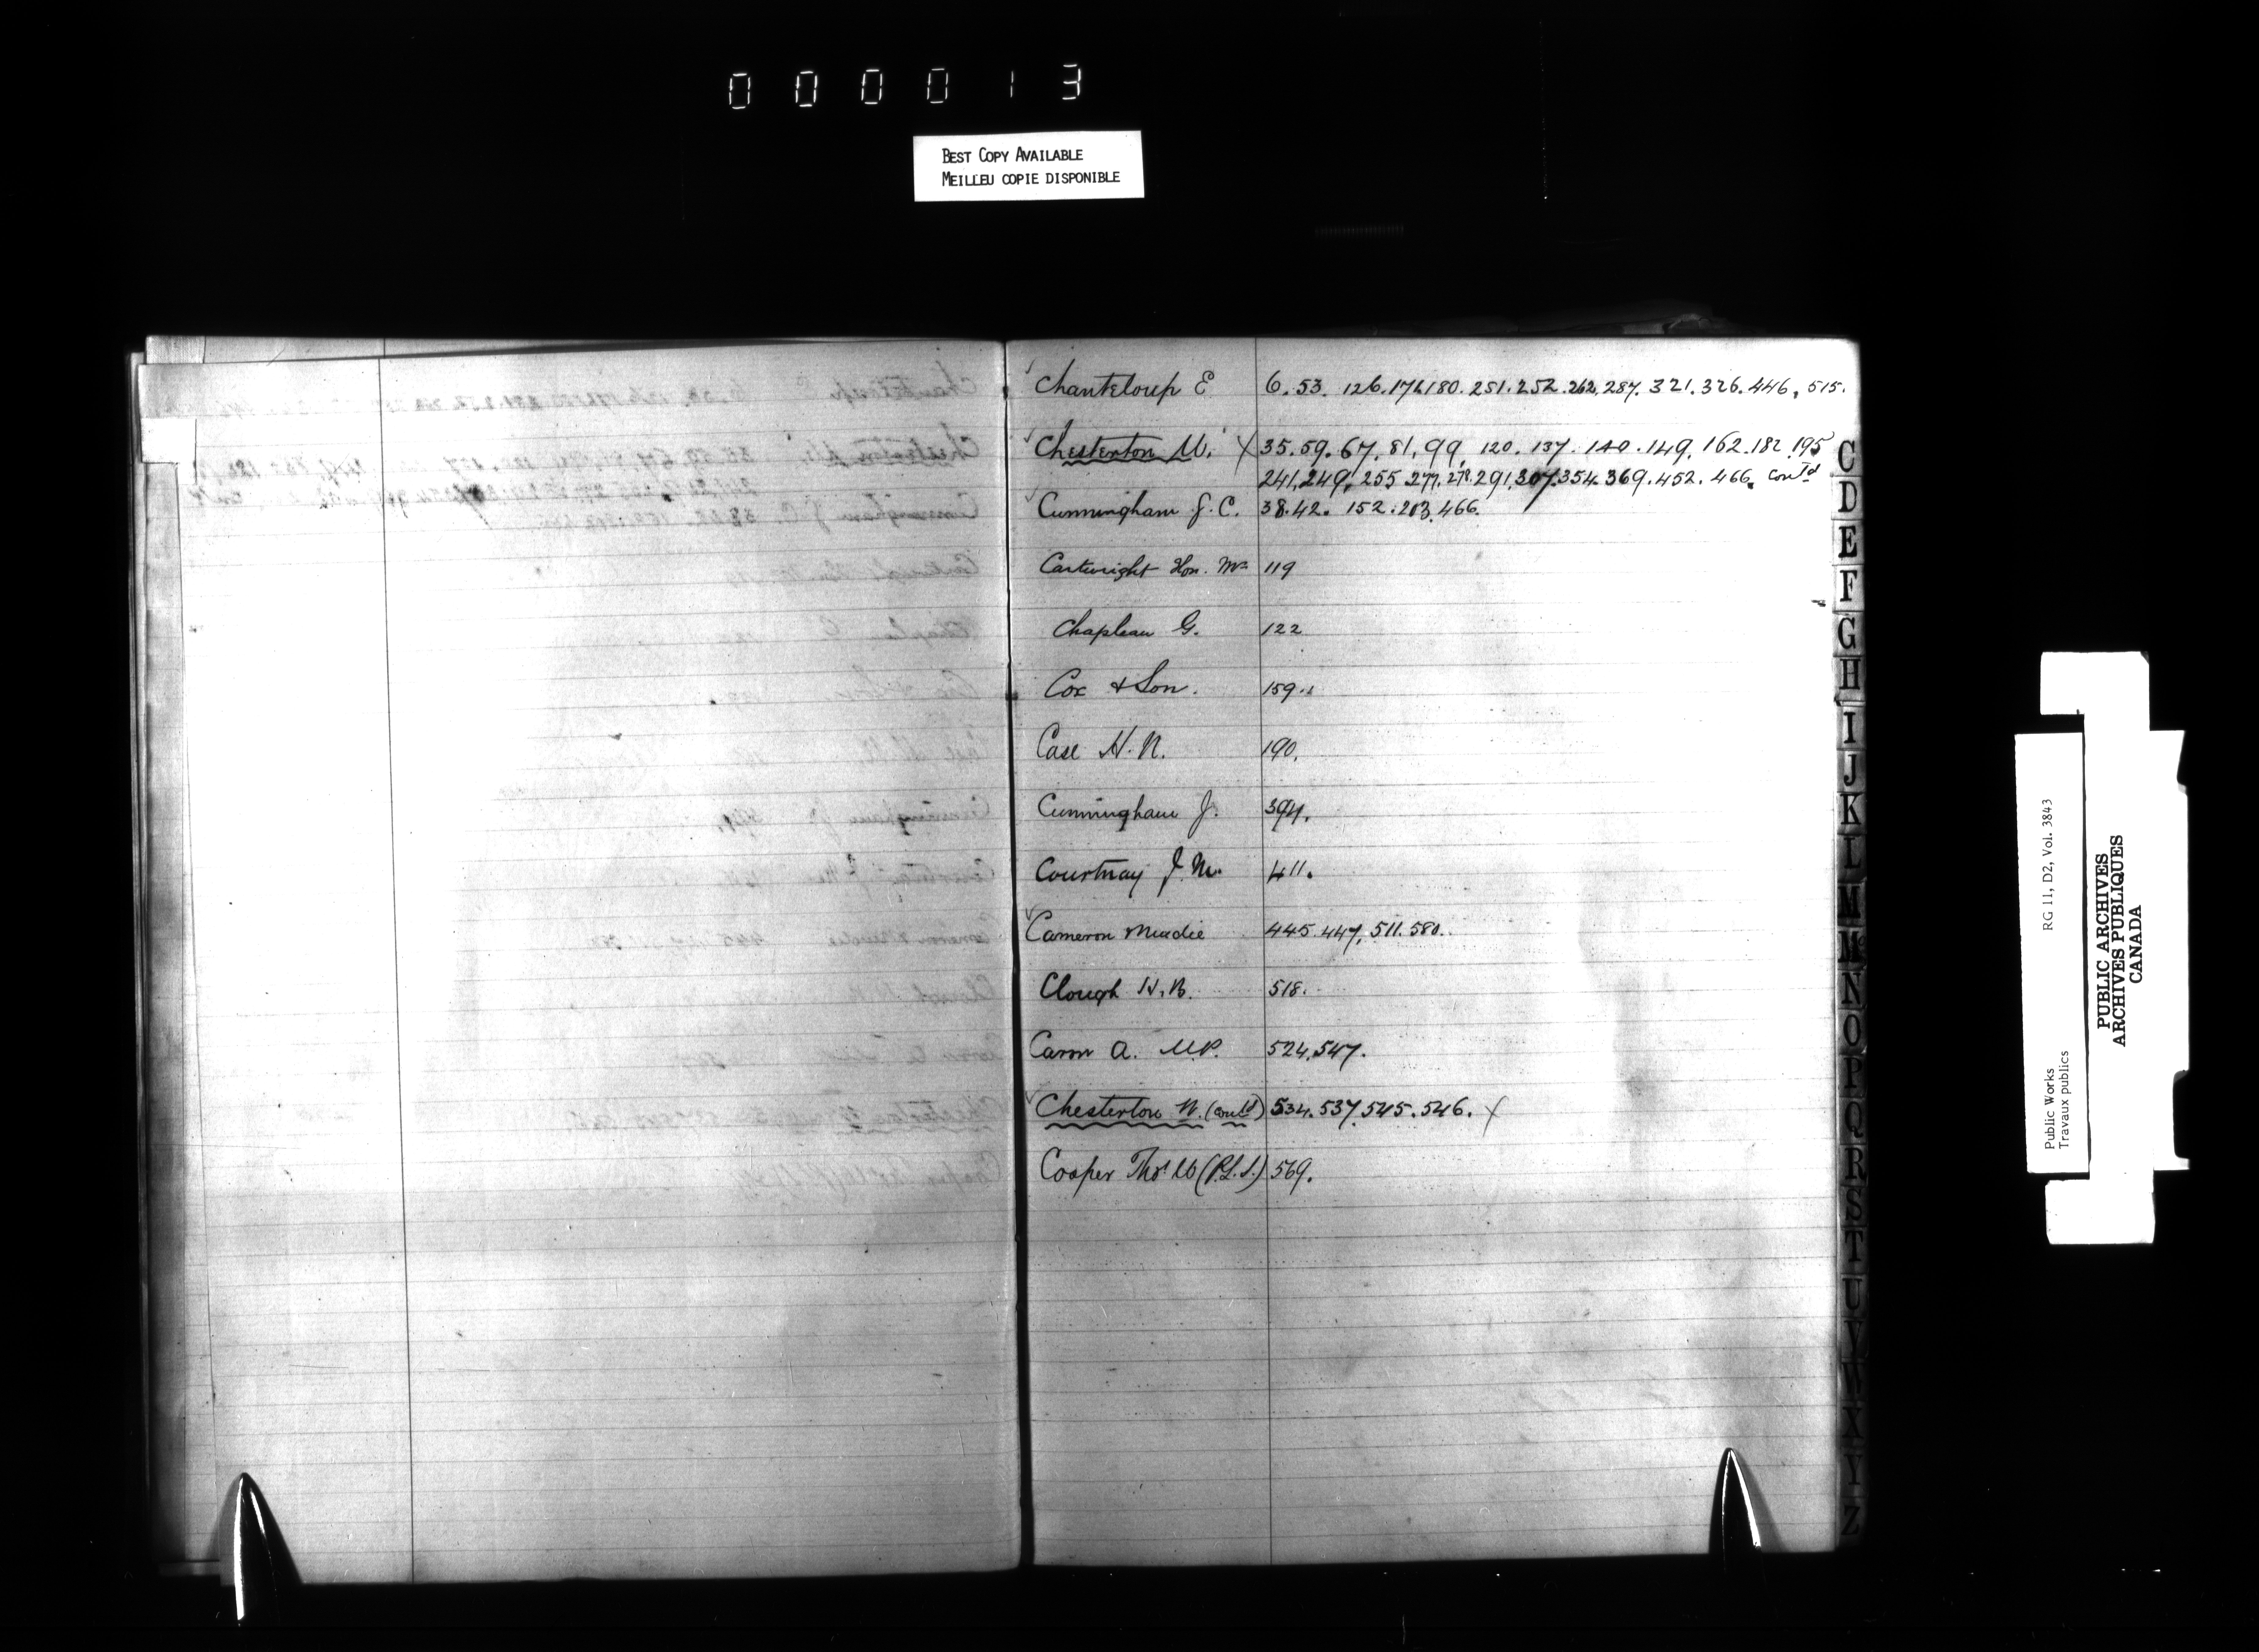 000013
BEST COPY AVAILABLE
MEILLEU COPIE DISPONIBLE
Chanteloup E 6. 53. 126. 176. 180. 251. 252. 262, 287. 321. 326. 446, 515.
Chesterton W. X 35. 59. 67, 81, 99, 120. 137. 140. 149, 162. 182. 195
241, 249, 255. 277. 278. 291. 307. 354. 369. 452. 466. Cont'd
Cunningham J. C. 38. 42. 152. 203. 466.
Cartwright Hon. Mr 119
Chapleau G. 122
Cox & Son. 159..
Case H. N. 190.
Cunningham J. 394.
Courtnay J. M. 411.
Cameron Meadie 445. 447, 511. 580.
Clough H. B. 518.
Caron A. M.P. 524, 547.
Chesterton W. (Contd) 534. 537. 545. 546. X
Cooper Thos W (P.L.S.) 569.
C
D
E
F
G
H
I
J
K
L
M
Mc
N
O
P
Q
R
S
T
U
V
W
X
Y
Z
Public Works RG 11, D2, Vol. 3843
Travaux publics
PUBLIC ARCHIVES
ARCHIVES PUBLIQUES
CANADA